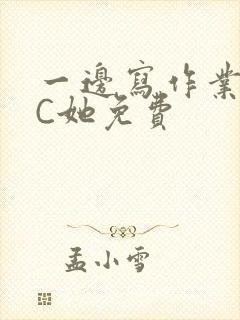 一邊寫作業
C她免費
孟小雪